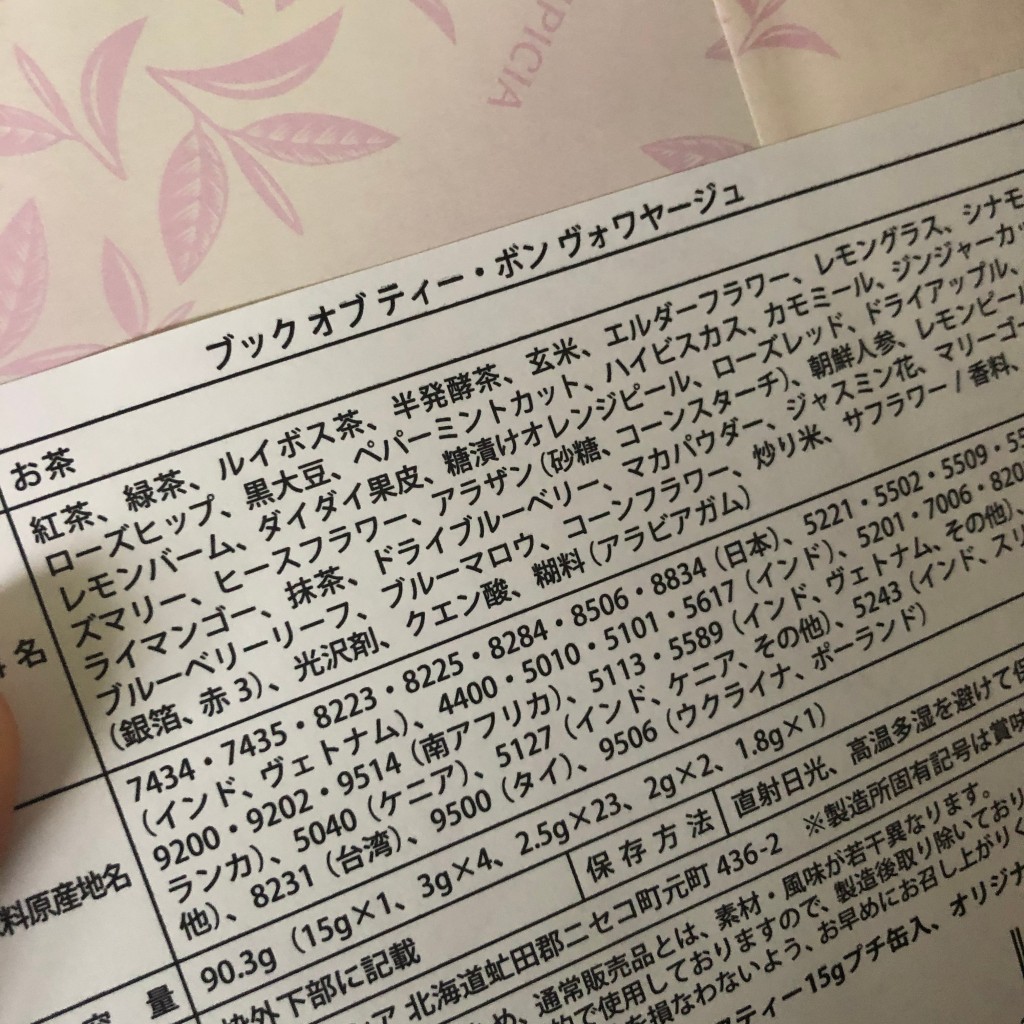 PICIA
ブック オブ ティー・ボン ヴォワヤージュ
お茶
紅茶、緑茶、ルイボス茶、半発酵茶、玄米、エルダーフラワー、レモングラス、シナモ
ローズヒップ、黒大豆、ペパーミントカット、ハイビスカス、カモミール、ジンジャーカッ
レモンバーム、ダイダイ果皮、糖漬けオレンジピール、ローズレッド、ドライアップル、
ズマリー、ヒースフラワー、アラザン（砂糖、コーンスターチ）、朝鮮人参、レモンピー
ライマンゴー、抹茶、ドライブルーベリー、マカパウダー、ジャスミン花、マリーゴー
ブルーベリーリーフ、ブルーマロウ、コーンフラワー、炒り米、サフラワー / 香料、
（銀箔、赤3）、光沢剤、クエン酸、糊料（アラビアガム）
名
7434・7435・8223・8225・8284・8506・8834（日本）、5221・5502・5509・55
（インド、ヴェトナム）、4400・5010・5101・5617（インド）、5201・7006・820
9200・9202・9514（南アフリカ）、5113・5589（インド、ヴェトナム、その他）、
ランカ）、5040（ケニア）、5127（インド、ケニア、その他）、5243（インド、スリ
他）、8231（台湾）、9500（タイ）、9506（ウクライナ、ポーランド）
料原産地名
90.3g（15g×1、3g×4、2.5g×23、2g×2、1.8g×1）
容 量
保存方法
直射日光、高温多湿を避けて保
枠外下部に記載
北海道虻田郡ニセコ町元町 436-2 ※製造所固有記号は賞味
め、通常販売品とは、素材・風味が若干異なります。
的で使用しておりますので、製造後取り除いており
を損なわないよう、お早めにお召し上がりく
ティー 15gプチ缶入、オリジナ